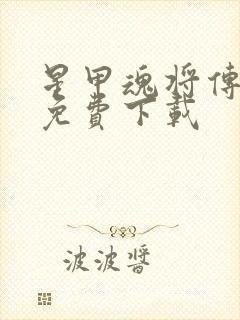 星甲魂将傳
免費下載
波波醬